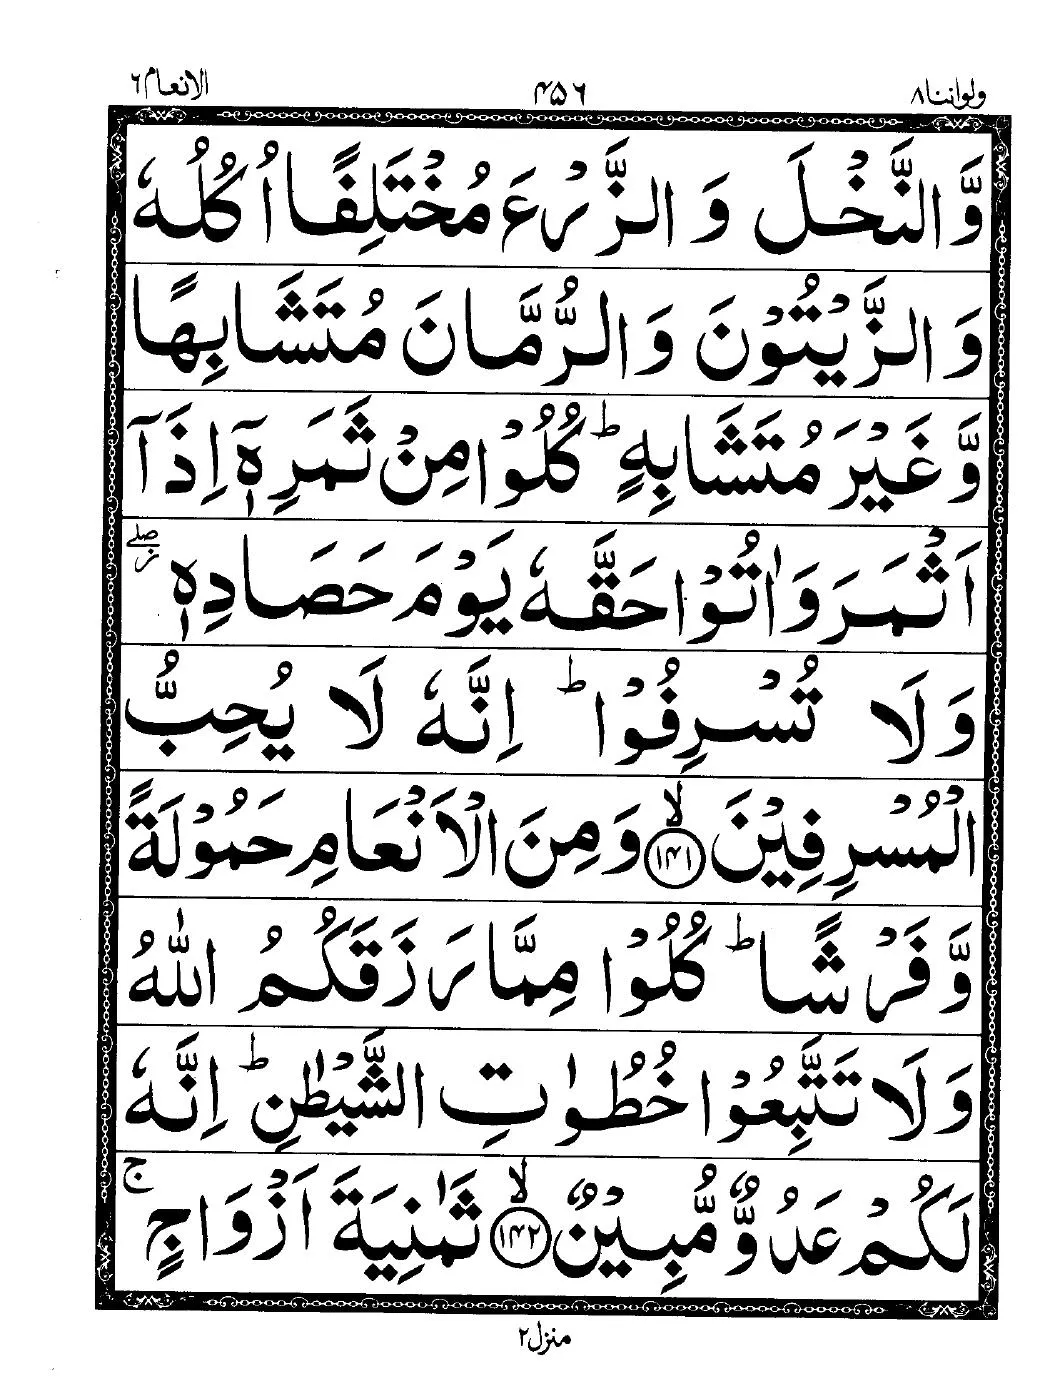 ولواننا٨ ۴۵۶ الانعام٦
وَّالنَّخْلَ وَ الزَّرْعَ مُخْتَلِفًا اُكُلُهٗ
وَ الزَّيْتُوْنَ وَ الرُّمَّانَ مُتَشَابِهًا
وَّ غَيْرَ مُتَشَابِهٍ ؕ كُلُوْا مِنْ ثَمَرِهٖۤ اِذَاۤ
اَثْمَرَ وَاٰتُوْا حَقَّهٗ يَوْمَ حَصَادِهٖ ۖ ز
وَلَا تُسْرِفُوْا ؕ اِنَّهٗ لَا يُحِبُّ
الْمُسْرِفِيْنَ ۙ ﴿١۴١﴾ وَ مِنَ الْاَنْعَامِ حَمُوْلَةً
وَّ فَرْشًا ؕ كُلُوْا مِمَّا رَزَقَكُمُ اللّٰهُ
وَلَا تَتَّبِعُوْا خُطُوٰتِ الشَّيْطٰنِ ؕ اِنَّهٗ
لَكُمْ عَدُوٌّ مُّبِيْنٌ ۙ ﴿١۴٢﴾ ثَمٰنِيَةَ اَزْوَاجٍ ۚ
منزل٢